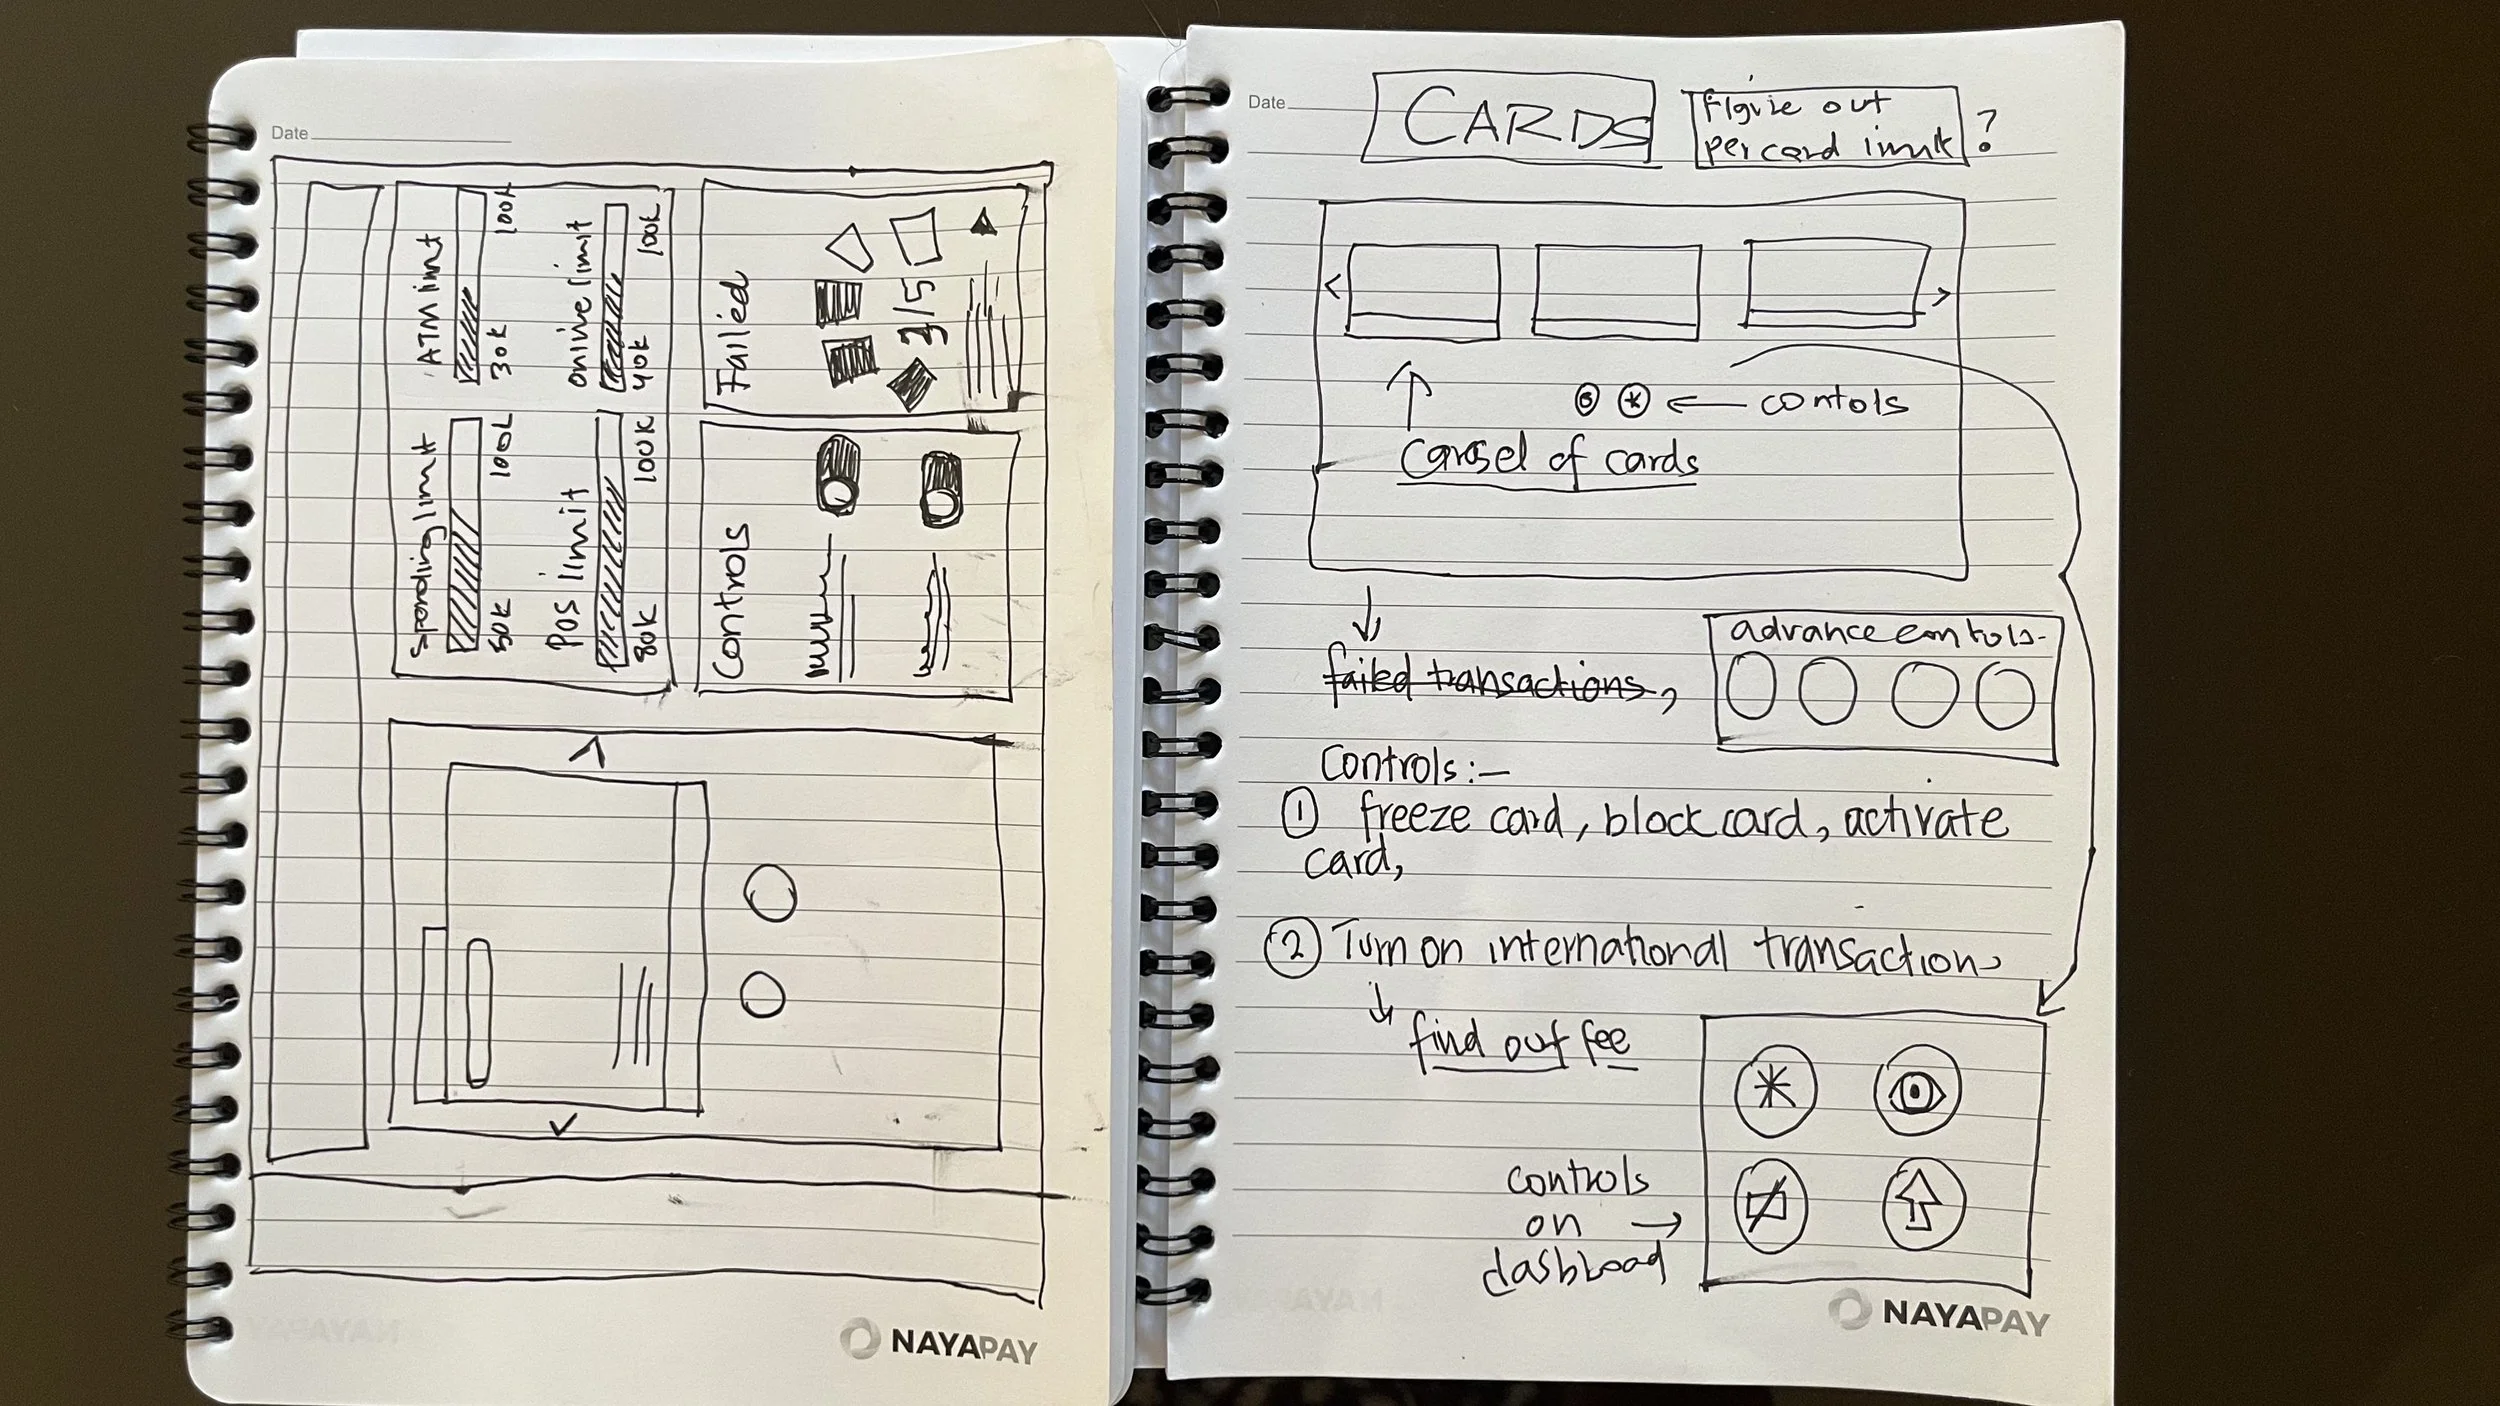 Date
Spending limit
50K 100L
ATM limit
30K 100K
POS limit
80K 100K
online limit
40K 100K
Controls
Failed
2/5
NAYAPAY
Date
CARDS
Figure out
per card limit ?
< >
contols
Carosel of cards
failed transactions,
advance controls-
Controls:-
1 freeze card, block card, activate
card,
2 Turn on international transaction
find out fee
controls
on
dashboad
NAYAPAY